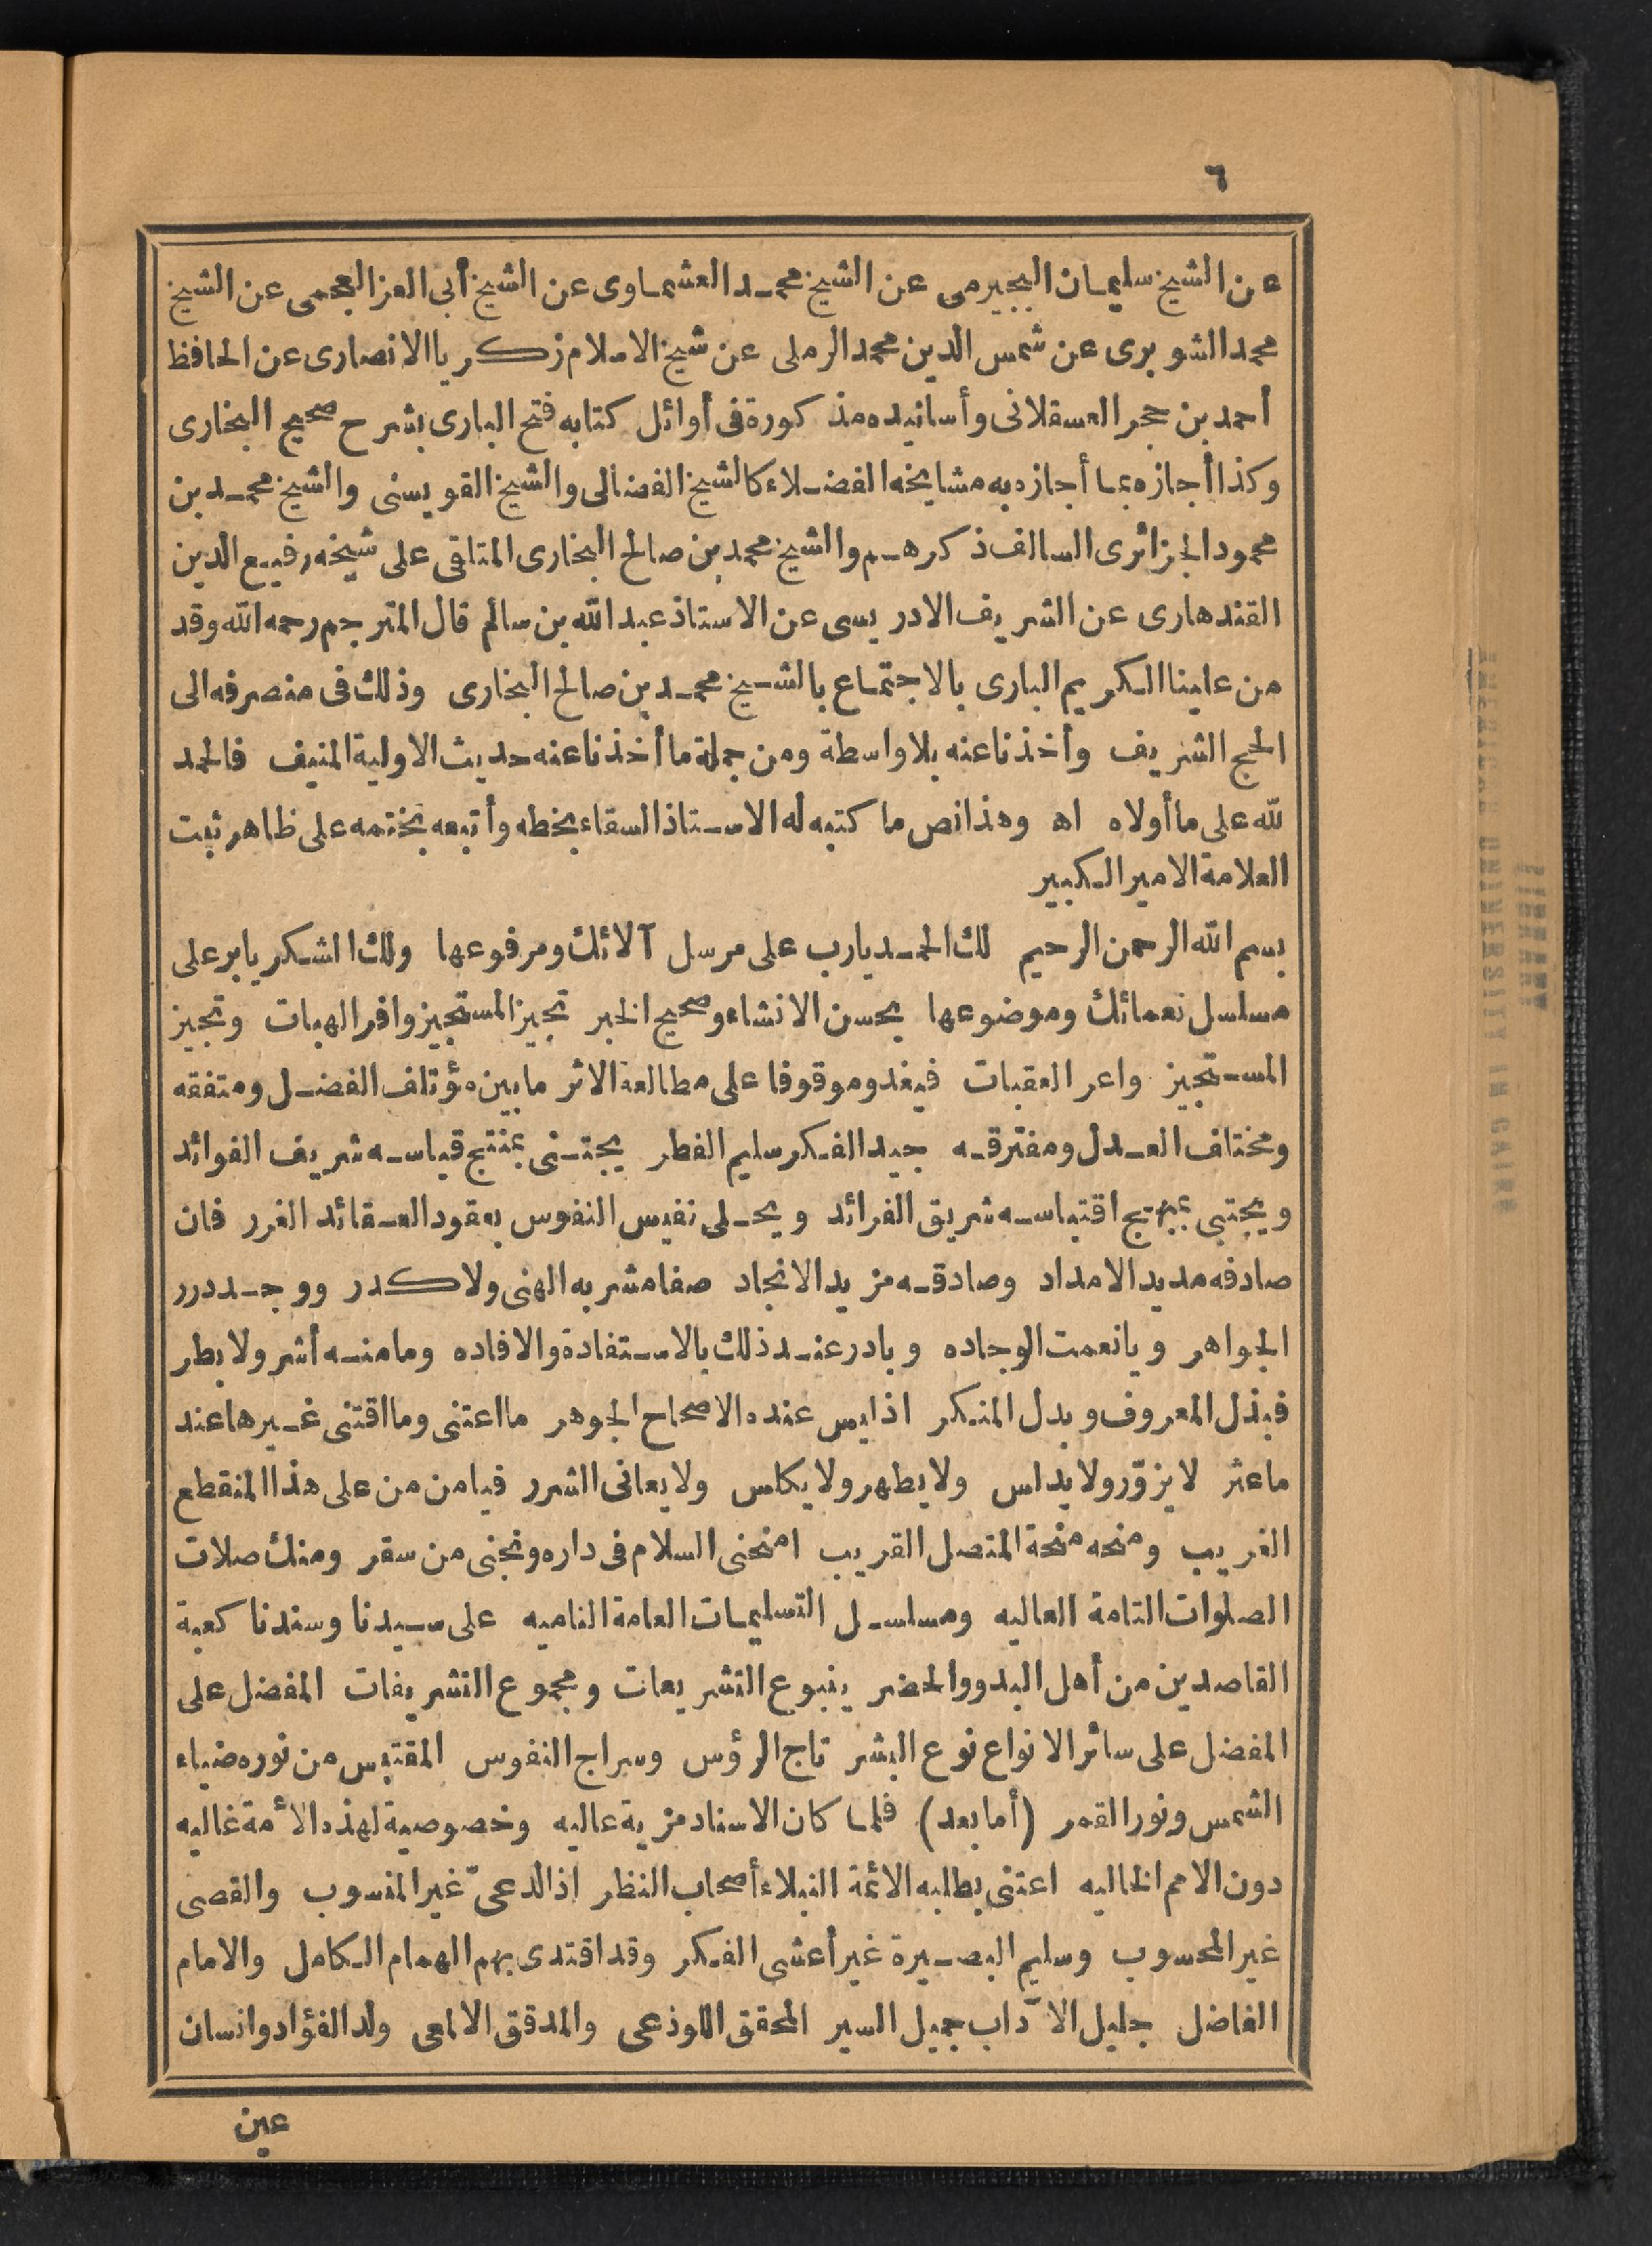 ٦
عن الشيخ سليمان البجيرمى عن الشيخ محمد العشماوى عن الشيخ أبى العز العجمى عن الشيخ
محمد الشوبرى عن شمس الدين محمد الرملى عن شيخ الاسلام زكريا الانصارى عن الحافظ
أحمد بن حجر العسقلانى وأسانيده مذكورة فى أوائل كتابه فتح البارى بشرح صحيح البخارى
وكذا أجازه بما أجازه به مشايخه الفضلاء كالشيخ الفضالى والشيخ القويسنى والشيخ محمد بن
محمود الجزائرى السالف ذكرهم والشيخ محمد بن صالح البخارى المتلقى على شيخه رفيع الدين
القندهارى عن الشريف الادريسى عن الاستاذ عبد الله بن سالم قال المترجم رحمه الله وقد
من علينا الكريم البارى بالاجتماع بالشيخ محمد بن صالح البخارى وذلك فى منصرفه الى
الحج الشريف وأخذنا عنه بلا واسطة ومن جملة ما أخذنا عنه حديث الاولية المنيف فالحمد
لله على ما أولاه اه وهذا نص ما كتبه له الاستاذ السقاء بخطه وأتبعه بختمه على ظاهر ثبت
العلامة الامير الكبير
بسم الله الرحمن الرحيم لك الحمد يارب على مرسل آلائك ومرفوعها ولك الشكر يابر على
مسلسل نعمائك وموضوعها بحسن الانشاء وصحيح الخبر تجيز المستجيز وافر الهبات وتجيز
المستجيز واعر العقبات فيغدو موقوفا على مطالعة الاثر ما بين مؤتلف الفضل ومتفقه
ومختلف العدل ومفترقه جيد الفكر سليم الفطر يجتنى بمنتج قياسه شريف الفوائد
ويجتبى بمبهج اقتباسه شريق الفرائد ويحلى نفيس النفوس بعقود العقائد الغرر فان
صادفه مديد الامداد وصادقه مزيد الانجاد صفا مشربه الهنى ولا كدر ووجد درر
الجواهر ويا نعمت الوجاده وبادر عند ذلك بالاستفادة والافاده وما منه أشر ولا بطر
فبذل المعروف وبدل المنكر اذ ليس عنده الا صحاح الجوهر ما اعتنى وما اقتنى غيرها عند
ما عثر لا يزوّر ولا يدلس ولا يطهر ولا يكلس ولا يعانى الشرر فيا من من على هذا المنقطع
الغريب ومنحه منحة المتصل القريب امنحنى السلام فى داره ونجنى من سقر ومنك صلات
الصلوات التامة العاليه ومسلسل التسليمات العامة الناميه على سيدنا وسندنا كعبة
القاصدين من أهل البدو والحضر ينبوع التشريعات ومجموع التشريفات المفضل على
المفضل على سائر الانواع نوع البشر تاج الرؤس وسراج النفوس المقتبس من نوره ضياء
الشمس ونور القمر (أما بعد) فلما كان الاسناد مزية عاليه وخصوصية لهذه الأمة غاليه
دون الامم الخاليه اعتنى بطلبه الائمة النبلاء أصحاب النظر اذ الدعىّ غير المنسوب والقصى
غير المحسوب وسليم البصيرة غير أعشى الفكر وقد اقتدى بهم الهمام الكامل والامام
الفاضل جليل الآداب جميل السير المحقق اللوذعى والمدقق الالمعى ولد الفؤاد وانسان
عين